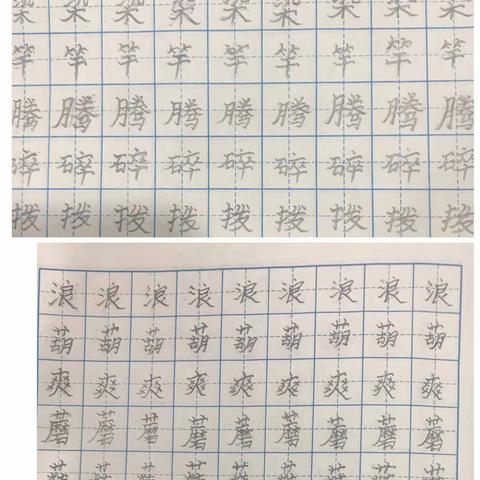 竿竿竿竿竿竿竿竿竿
腾腾腾腾腾腾腾腾腾
碎碎碎碎碎碎碎碎碎
拨拨拨拨拨拨拨拨拨
浪浪浪浪浪浪浪浪浪
葫葫葫葫葫葫葫葫葫
爽爽爽爽爽爽爽爽爽
蘑蘑蘑蘑蘑蘑蘑蘑蘑